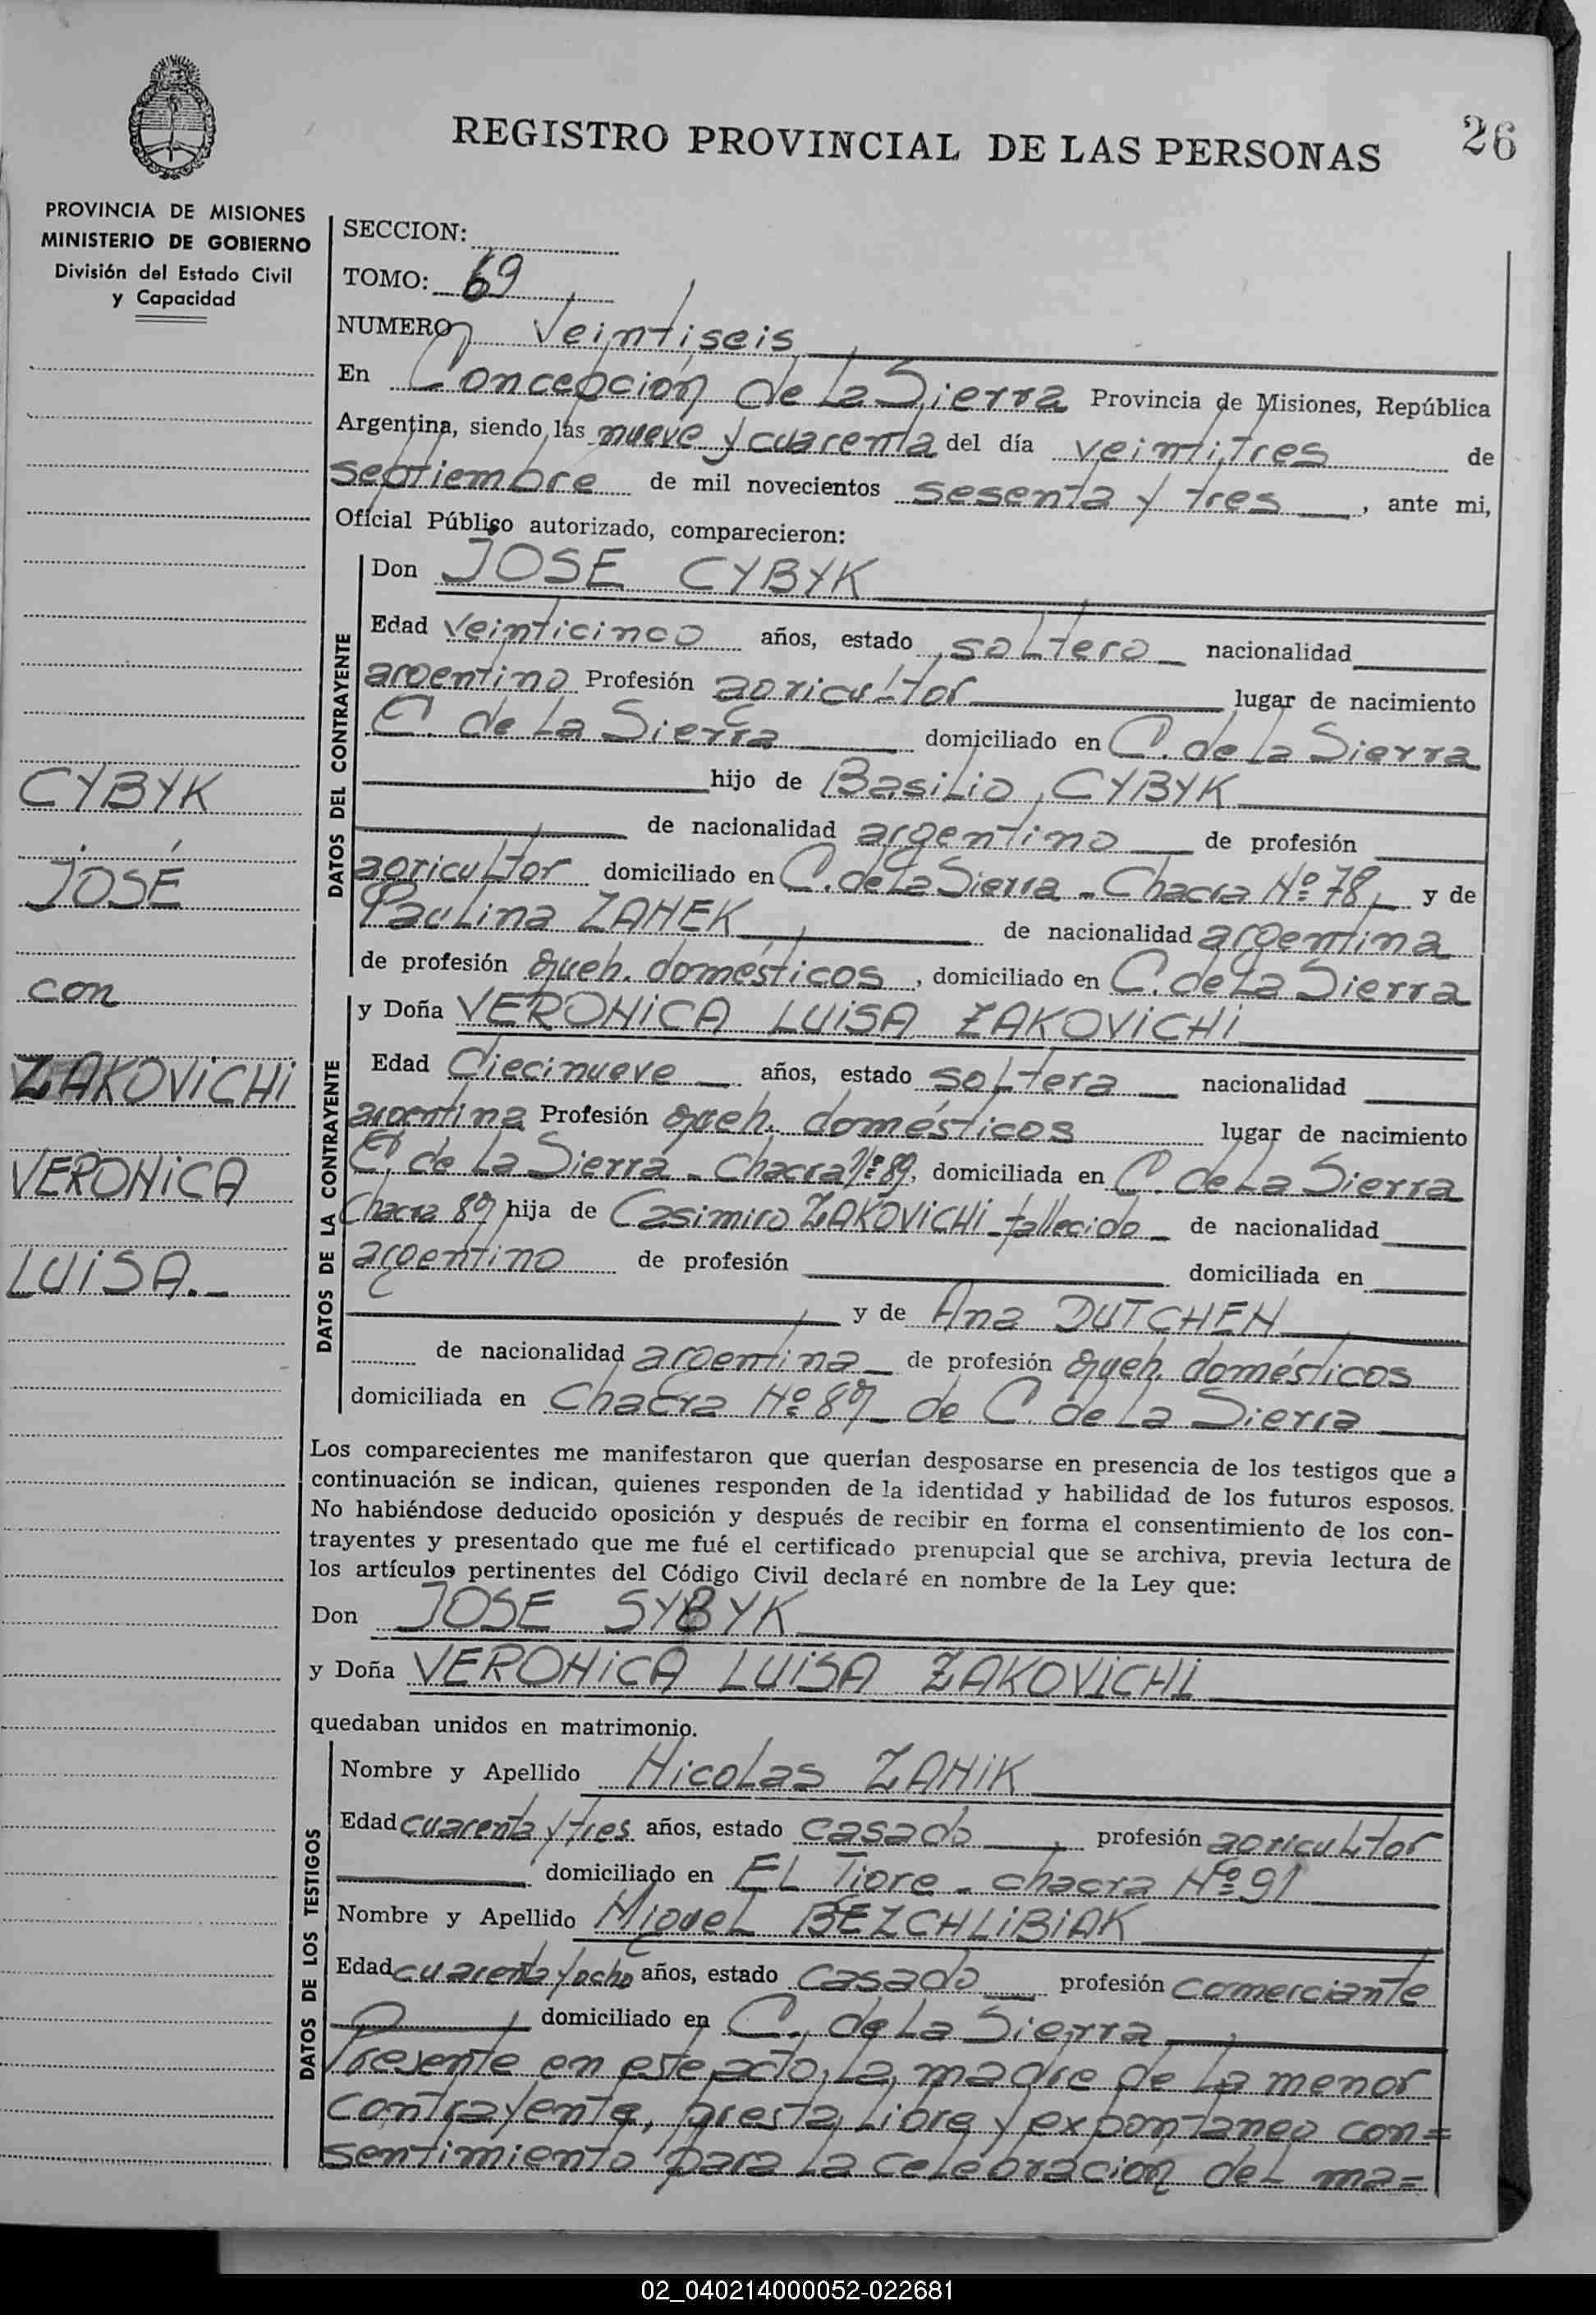 REGISTRO PROVINCIAL DE LAS PERSONAS
26
PROVINCIA DE MISIONES
MINISTERIO DE GOBIERNO
División del Estado Civil
y Capacidad
CYBYK
JOSÉ
con
ZAKOVICHI
VERONICA
LUISA.-
SECCION:
TOMO: 69
NUMERO Veintiseis
En Concepción de La Sierra Provincia de Misiones, República
Argentina, siendo las nueve y cuarenta del día veintitres de
septiembre de mil novecientos sesenta y tres, ante mi,
Oficial Público autorizado, comparecieron:
DATOS DEL CONTRAYENTE
Don JOSE CYBYK
Edad veinticinco años, estado soltero nacionalidad
argentino Profesión agricultor lugar de nacimiento
C. de La Sierra domiciliado en C. de La Sierra
hijo de Basilio CYBYK
de nacionalidad argentino de profesión
agricultor domiciliado en C. de La Sierra - Chacra Nº 78, y de
Paulina ZANEK de nacionalidad argentina
de profesión queh. domésticos, domiciliado en C. de La Sierra
DATOS DE LA CONTRAYENTE
y Doña VERONICA LUISA ZAKOVICHI
Edad Diecinueve años, estado soltera nacionalidad
argentina Profesión queh. domésticos lugar de nacimiento
C. de La Sierra - Chacra Nº 89, domiciliada en C. de La Sierra
Chacra 89 hija de Casimiro ZAKOVICHI - fallecido - de nacionalidad
argentino de profesión domiciliada en
y de Ana DUTCHEN
de nacionalidad argentina de profesión queh. domésticos
domiciliada en Chacra Nº 89 - de C. de La Sierra
Los comparecientes me manifestaron que querían desposarse en presencia de los testigos que a
continuación se indican, quienes responden de la identidad y habilidad de los futuros esposos.
No habiéndose deducido oposición y después de recibir en forma el consentimiento de los con-
trayentes y presentado que me fué el certificado prenupcial que se archiva, previa lectura de
los artículos pertinentes del Código Civil declaré en nombre de la Ley que:
Don JOSE SYBYK
y Doña VERONICA LUISA ZAKOVICHI
quedaban unidos en matrimonio.
DATOS DE LOS TESTIGOS
Nombre y Apellido Nicolas ZANIK
Edad cuarenta y tres años, estado casado, profesión agricultor
domiciliado en EL Tigre - chacra Nº 91
Nombre y Apellido Miguel BEZCHLIBIAK
Edad cuarenta y ocho años, estado casado profesión comerciante
domiciliado en C. de La Sierra
Presente en este acto, la madre de la menor
contrayente, presta libre y expontaneo con=
sentimiento para la celebración del ma=
02_040214000052-022681